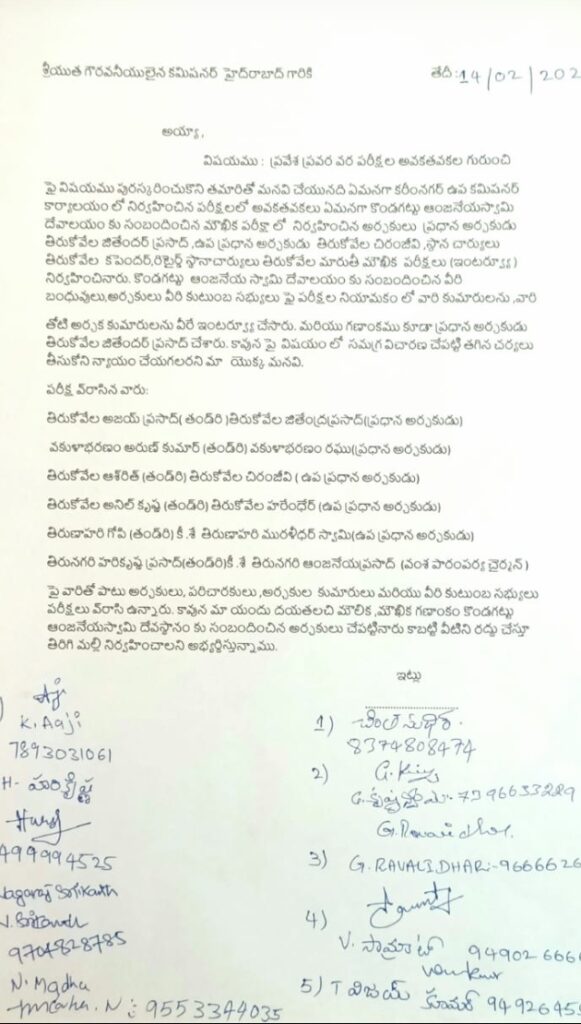 శ్రీయుత గౌరవనీయులైన కమిషనర్ హైద్రాబాద్ గారికి తేదీ:14/02/202
అయ్యా,
విషయము : ప్రవేశ ప్రవర వర పరీక్షల అవకతవకల గురుంచి
పై విషయము పురస్కరించుకొని తమరితో మనవి చేయునది ఏమనగా కరీంనగర్ ఉప కమిషనర్
కార్యాలయం లో నిర్వహించిన పరీక్షలలో అవకతవకలు ఏమనగా కొండగట్టు ఆంజనేయస్వామి
దేవాలయం కు సంబందించిన మౌఖిక పరీక్షా లో నిర్వహించిన అర్చకులు ప్రధాన అర్చకుడు
తిరుకోవేల జితేందర్ ప్రసాద్ ,ఉప ప్రధాన అర్చకుడు తిరుకోవేల చిరంజీవి ,స్థాన చార్యులు
తిరుకోవేల కపెందర్,రిటైర్డ్ స్థానాచార్యులు తిరుకోవేల మారుతీ మౌఖిక పరీక్షలు (ఇంటర్వ్యూ )
నిర్వహించినారు. కొండగట్టు ఆంజనేయ స్వామి దేవాలయం కు సంబందించిన వీరి
బంధువులు,అర్చకులు వీరి కుటుంబ సభ్యులు పై పరీక్షల నియామకం లో వారి కుమారులను ,వారి
తోటి అర్చక కుమారులను వీరే ఇంటర్వ్యూ చేసారు. మరియు గణాంకము కూడా ప్రధాన అర్చకుడు
తిరుకోవేల జితేందర్ ప్రసాద్ చేశారు. కావున పై విషయం లో సమగ్ర విచారణ చేపట్టి తగిన చర్యలు
తీసుకోని న్యాయం చేయగలరని మా యొక్క మనవి.
పరీక్ష వ్‌రాసిన వారు:
తిరుకోవేల అజయ్ ప్రసాద్( తండ్‌రి )తిరుకోవేల జితేంద్రప్రసాద్(ప్రధాన అర్చకుడు)
వకుళాభరణం అరుణ్ కుమార్ (తండ్‌రి) వకుళాభరణం రఘు(ప్రధాన అర్చకుడు)
తిరుకోవేల ఆశ్‌రిత్ (తండ్‌రి) తిరుకోవేల చిరంజీవి ( ఉప ప్రధాన అర్చకుడు)
తిరుకోవేల అనిల్ కృష్ణ (తండ్‌రి) తిరుకోవేల హరేందేర్ (ఉప ప్రధాన అర్చకుడు)
తిరుణాహరి గోపి (తండ్‌రి) కీ.శే తిరుణాహరి మురళీధర్ స్వామి(ఉప ప్రధాన అర్చకుడు)
తిరునగరి హరికృష్ణ ప్రసాద్(తండ్‌రి)కీ.శే తిరునగరి ఆంజనేయప్రసాద్ (వంశ పారంపర్య చైర్మన్ )
పై వారితో పాటు అర్చకులు, పరిచారకులు ,అర్చకుల కుమారులు మరియు వీరి కుటుంబ సభ్యులు
పరీక్షలు వ్‌రాసి ఉన్నారు. కావున మా యందు దయతలచి మౌలిక ,మౌఖిక గణాంకం కొండగట్టు
ఆంజనేయస్వామి దేవస్థానం కు సంబందించిన అర్చకులు చేపట్టినారు కాబట్టి వీటిని రద్దు చేస్తూ
తిరిగి మల్లి నిర్వహించాలని అభ్యర్థిస్తున్నాము.
ఇట్లు
K. Aaji
7893031061
H- హరికృష్ణ
499994525
Nagaraj Srikanth
9704828785
N. Madhu
9553344035
1) చింత సుధీర.
8374808474
2)
G. Ravalidhar.
3) G. RAVALIDHAR:-9666626
4)
V. సామ్రాట్ 949026666
5) T విజయ్ కూమార్ 9492645